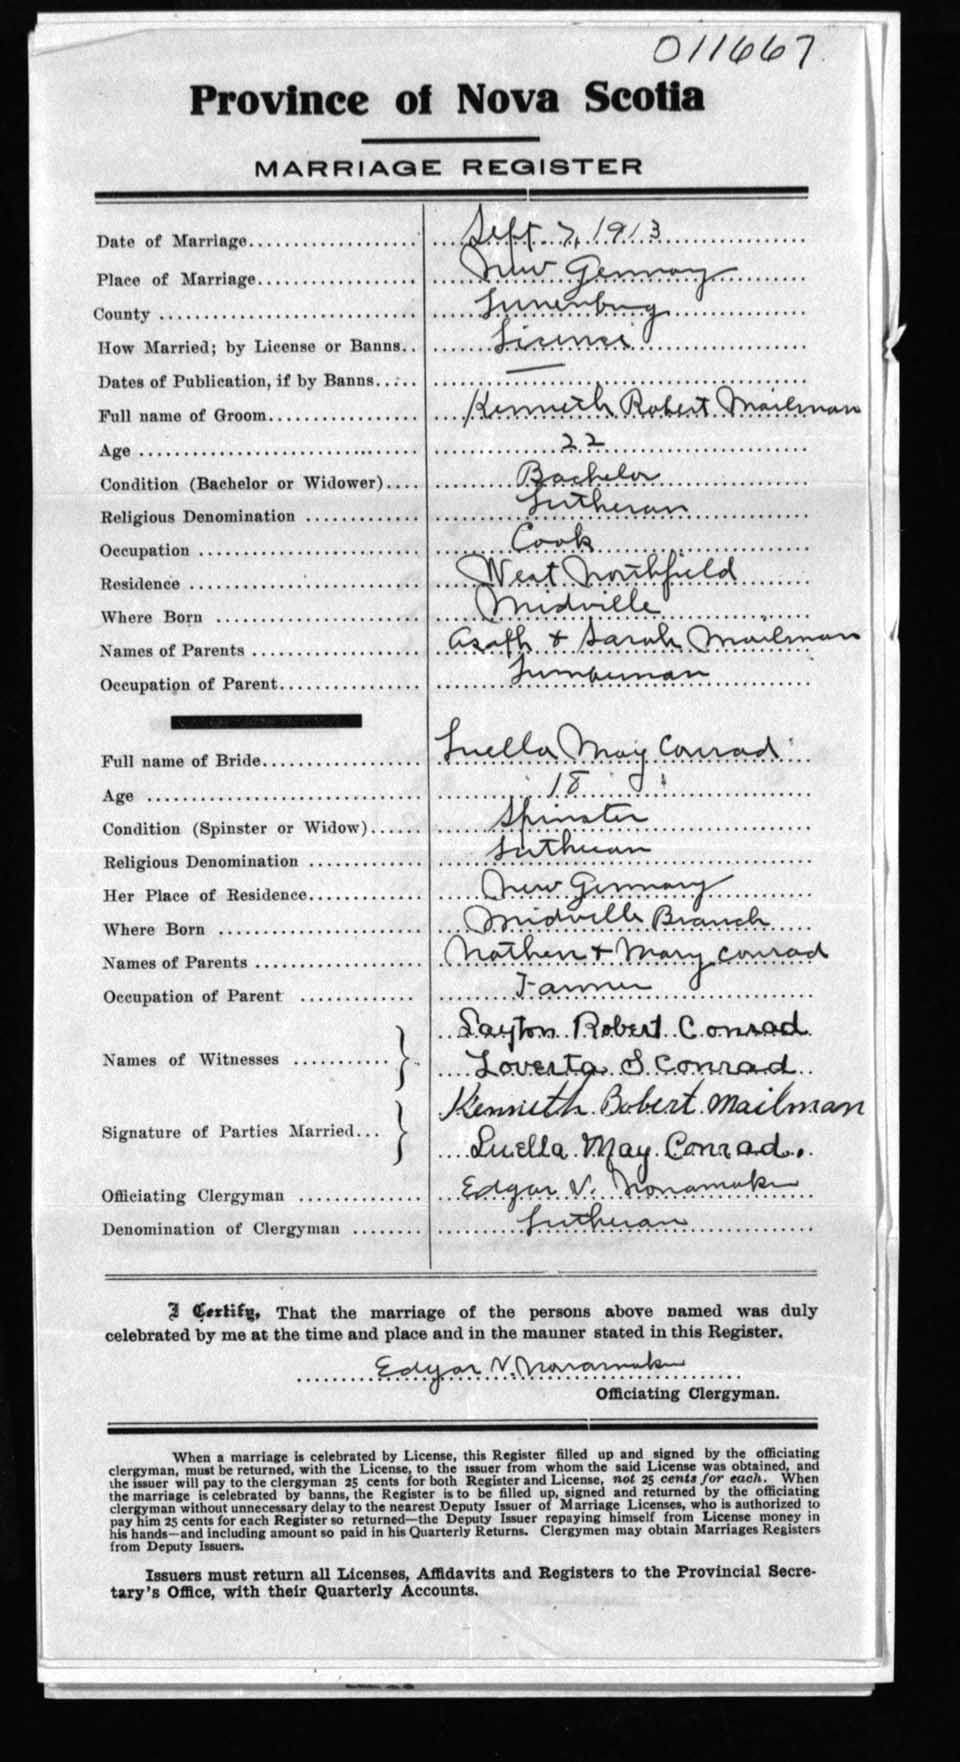 011667
Province of Nova Scotia
MARRIAGE REGISTER
Date of Marriage.................... Sept 7, 1913
Place of Marriage.................. New Germany
County .............................. Lunenburg
How Married; by License or Banns.. License
Dates of Publication, if by Banns..... —
Full name of Groom.................. Kenneth Robert Mailman
Age ................................ 22
Condition (Bachelor or Widower).... Bachelor
Religious Denomination ............. Lutheran
Occupation .......................... Cook
Residence ........................... West Northfield
Where Born ......................... Midville
Names of Parents ................... Asaph & Sarah Mailman
Occupation of Parent................ Lumberman
Full name of Bride.................. Luella May Conrad
Age ................................ 18
Condition (Spinster or Widow)...... Spinster
Religious Denomination ............. Lutheran
Her Place of Residence.............. New Germany
Where Born ......................... Midville Branch
Names of Parents ................... Nathen & Mary Conrad
Occupation of Parent .............. Farmer
Names of Witnesses ........... } Layton Robert Conrad
Loverta S Conrad
Signature of Parties Married... } Kenneth Robert Mailman
Luella May Conrad.
Officiating Clergyman .............. Edgar V. Nonamaker
Denomination of Clergyman ........ Lutheran
I Certify, That the marriage of the persons above named was duly
celebrated by me at the time and place and in the manner stated in this Register.
Edgar V. Nonamaker
Officiating Clergyman.
When a marriage is celebrated by License, this Register filled up and signed by the officiating
clergyman, must be returned, with the License, to the issuer from whom the said License was obtained, and
the issuer will pay to the clergyman 25 cents for both Register and License, not 25 cents for each. When
the marriage is celebrated by banns, the Register is to be filled up, signed and returned by the officiating
clergyman without unnecessary delay to the nearest Deputy Issuer of Marriage Licenses, who is authorized to
pay him 25 cents for each Register so returned—the Deputy Issuer repaying himself from License money in
his hands—and including amount so paid in his Quarterly Returns. Clergymen may obtain Marriages Registers
from Deputy Issuers.
Issuers must return all Licenses, Affidavits and Registers to the Provincial Secre-
tary's Office, with their Quarterly Accounts.